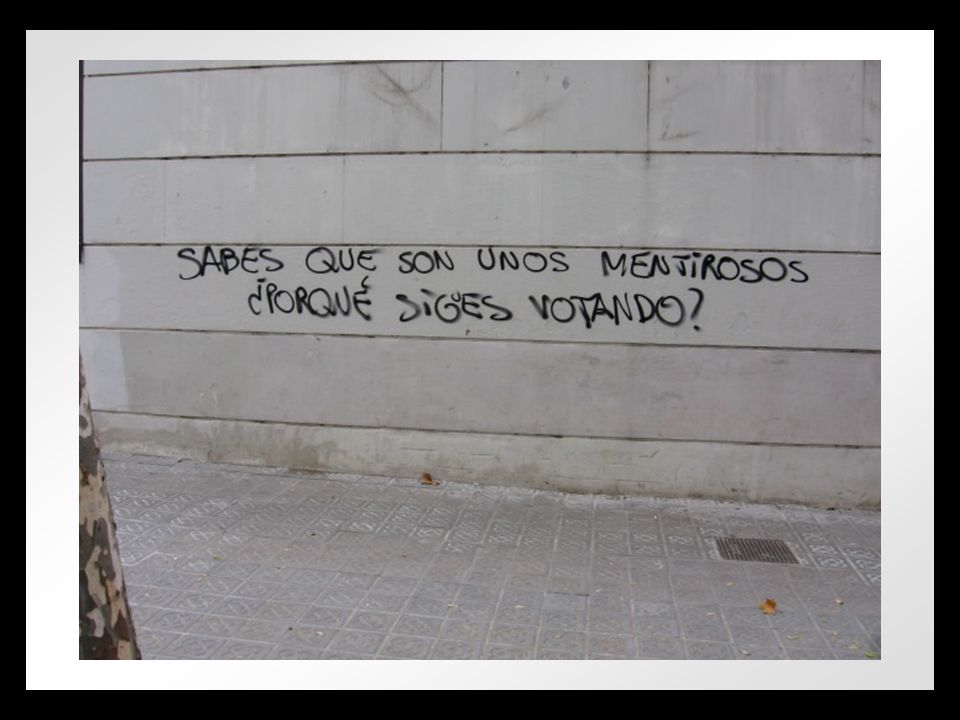 SABES QUE SON UNOS MENTIROSOS
¿PORQUÉ SIGES VOTANDO?